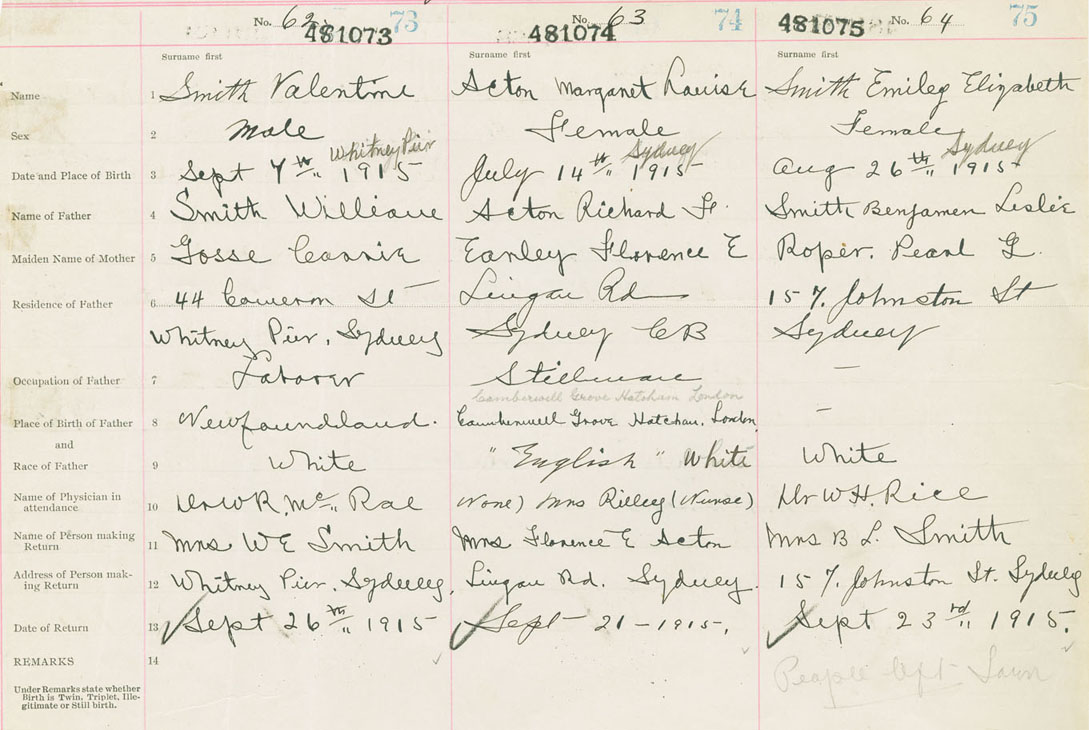 No. 62 73 No. 63 74 No. 64 75
481073 481074 481075
Surname first Surname first Surname first
Name 1 Smith Valentine Acton Margaret Louise Smith Emiley Elizabeth
Sex 2 Male Female Female
Whitney Pier Sydney Sydney
Date and Place of Birth 3 Sept 7th 1915 July 14th 1915 Aug 26th 1915
Name of Father 4 Smith William Acton Richard F. Smith Benjamen Leslie
Maiden Name of Mother 5 Gosse Carrie Earley Florence E Roper. Pearl G.
Residence of Father 6 44 Cameron St Lingan Rd 157. Johnston St
Whitney Pier, Sydney Sydney CB Sydney
Occupation of Father 7 Laborer Stillman —
Camberwell Grove Hatcham London
Place of Birth of Father 8 Newfoundland. Camberwell Grove Hatcham, London —
and
Race of Father 9 White "English" White White
Name of Physician in
attendance 10 Dr W R. Mc Rae None) Mrs Rilley (Nurse) Dr W H. Rice
Name of Person making
Return 11 Mrs W E Smith Mrs Florence E Acton Mrs B L. Smith
Address of Person mak-
ing Return 12 Whitney Pier, Sydney, Lingan Rd. Sydney. 157. Johnston St. Sydney
Date of Return 13 Sept 26th 1915 Sept 21 - 1915. Sept 23rd 1915.
REMARKS 14 People left Town
Under Remarks state whether
Birth is Twin, Triplet, Ille-
gitimate or Still birth.